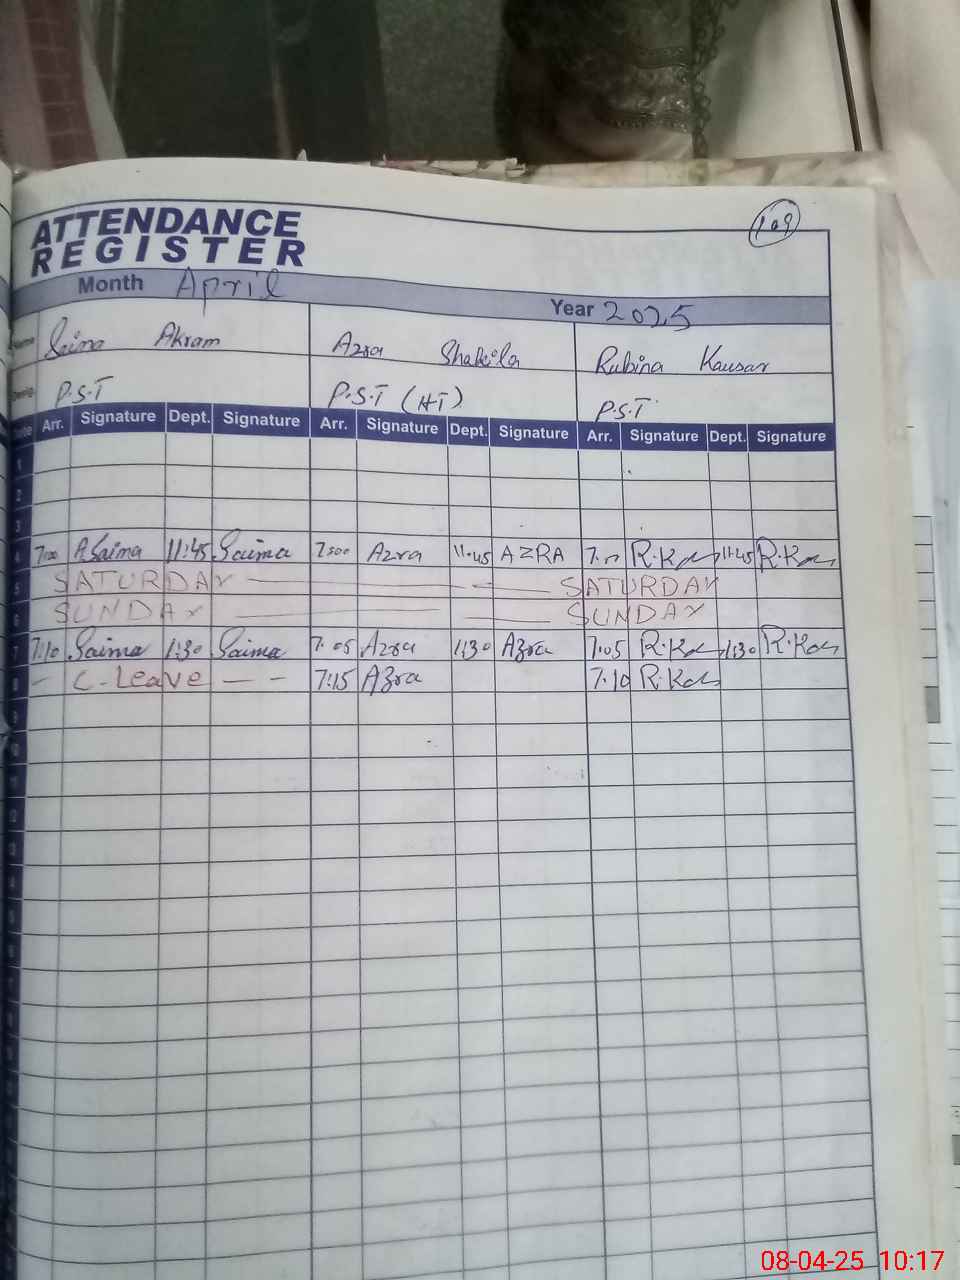 109
ATTENDANCE
REGISTER
Month April
Year 2025
Saima Akram Azra Shakila Rubina Kausar
P.S.T P.S.T (HT) P.S.T
Arr. Signature Dept. Signature Arr. Signature Dept. Signature Arr. Signature Dept. Signature
1
2
3
4 7:00 A.Saima 11:45 Saima 7:00 Azra 11:45 AZRA R.Kau 11:45 R.Kau
5 SATURDAY SATURDAY
6 SUNDAY SUNDAY
7 7:10 Saima 1:30 Saima 7:05 Azra 1:30 Azra 7:05 R.Kau 1:30 R.Kau
8 — C-Leave — — 7:15 Azra 7:10 R.Kau
9
10
11
12
13
08-04-25 10:17